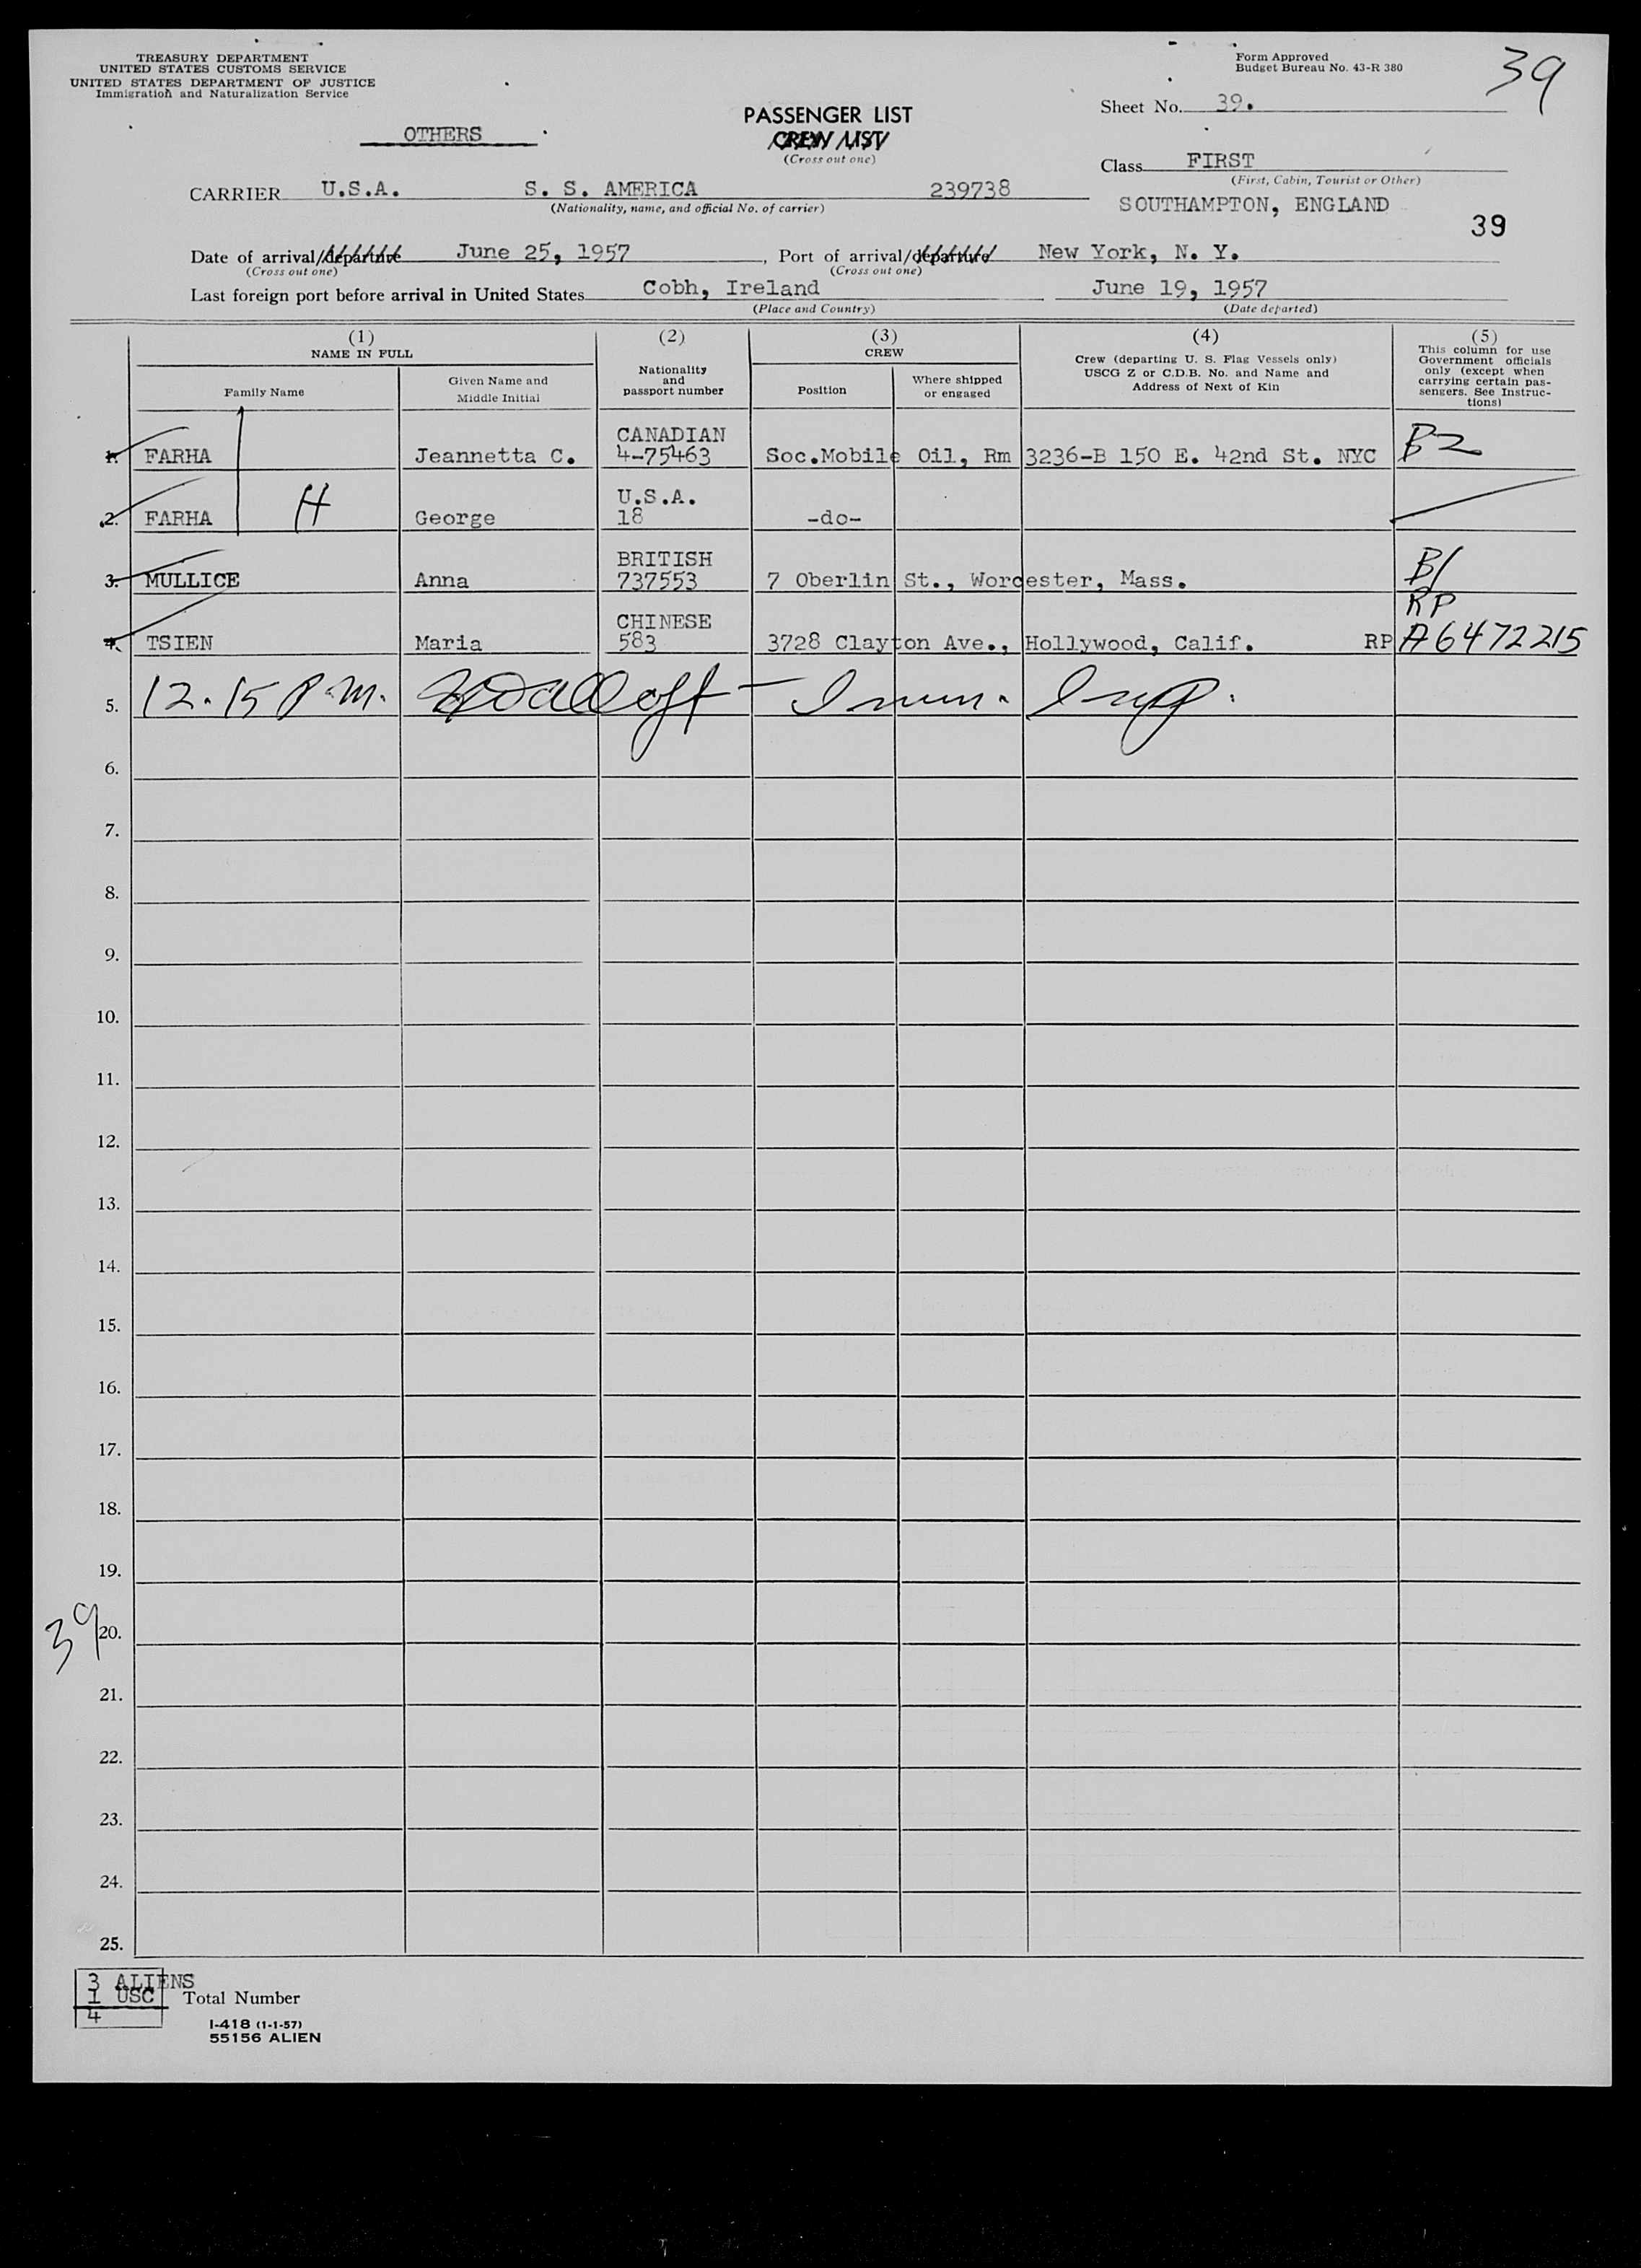 TREASURY DEPARTMENT
UNITED STATES CUSTOMS SERVICE
UNITED STATES DEPARTMENT OF JUSTICE
Immigration and Naturalization Service
Form Approved
Budget Bureau No. 43-R 380
39
Sheet No. 39.
OTHERS
PASSENGER LIST
CREW LIST
(Cross out one)
Class FIRST
(First, Cabin, Tourist or Other)
CARRIER U.S.A. S. S. AMERICA 239738
(Nationality, name, and official No. of carrier)
SOUTHAMPTON, ENGLAND
39
Date of arrival/departure June 25, 1957, Port of arrival/departure New York, N. Y.
(Cross out one) (Cross out one)
Last foreign port before arrival in United States Cobh, Ireland June 19, 1957
(Place and Country) (Date departed)
(1) (2) (3) (4) (5)
NAME IN FULL
Family Name
Given Name and
Middle Initial
Nationality
and
passport number
CREW
Position
Where shipped
or engaged
Crew (departing U. S. Flag Vessels only)
USCG Z or C.D.B. No. and Name and
Address of Next of Kin
This column for use
Government officials
only (except when
carrying certain pas-
sengers. See Instruc-
tions)
CANADIAN
1. FARHA Jeannetta C. 4-75463 Soc.Mobile Oil, Rm 3236-B 150 E. 42nd St. NYC B2
U.S.A.
2. FARHA H George 18 -do-
BRITISH
3. MULLICE Anna 737553 7 Oberlin St., Worcester, Mass. B1
CHINESE RP
4. TSIEN Maria 583 3728 Clayton Ave., Hollywood, Calif. RP A6472215
5. 12.15 P.M. Imm. Insp.
6.
7.
8.
9.
10.
11.
12.
13.
14.
15.
16.
17.
18.
19.
39
20.
21.
22.
23.
24.
25.
3 ALIENS
1 USC Total Number
4
I-418 (1-1-57)
55156 ALIEN